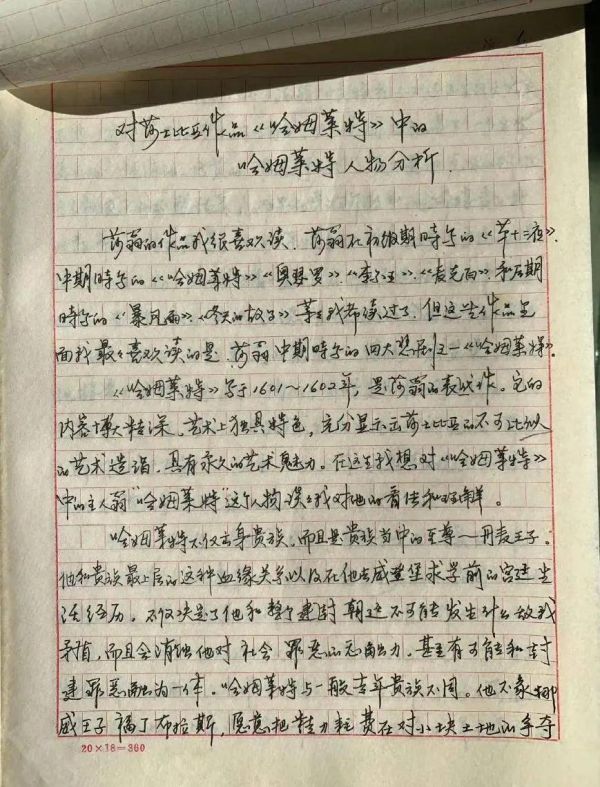 对莎士比亚作品《哈姆莱特》中的
哈姆莱特人物分析.
莎翁的作品我很喜欢读. 莎翁在初级期时写的《第十二夜》.
中期时写的《哈姆莱特》《奥瑟罗》.《李尔王》.《麦克白》和后期
时写的《暴风雨》.《冬天的故事》等等我都读过了. 但这些作品里
面我最喜欢读的是. 莎翁中期时写的四大悲剧之一《哈姆莱特》.
《哈姆莱特》写于1601~1602年, 是莎翁的代表作. 它的
内容博大精深. 艺术上独具特色, 充分显示出莎士比亚的不可比拟
的艺术造诣, 具有永久的艺术魅力. 在这里我想对《哈姆莱特》
中的主人翁"哈姆莱特"这个人物谈谈我对他的看法和理解.
哈姆莱特不仅出身贵族. 而且是贵族当中的至尊——丹麦王子.
他和贵族最上层的这种血缘关系以及在他去威登堡求学前的宫廷生
活经历. 不仅决定了他和整个建封朝廷不可能发生什么敌我
矛盾, 而且会消蚀他对社会罪恶的 力. 甚至有可能和封
建罪恶融为一体. 哈姆莱特与一般青年贵族不同. 他不象挪
威王子福丁布拉斯, 愿意把精力耗费在对小块土地的争夺
20×18=360